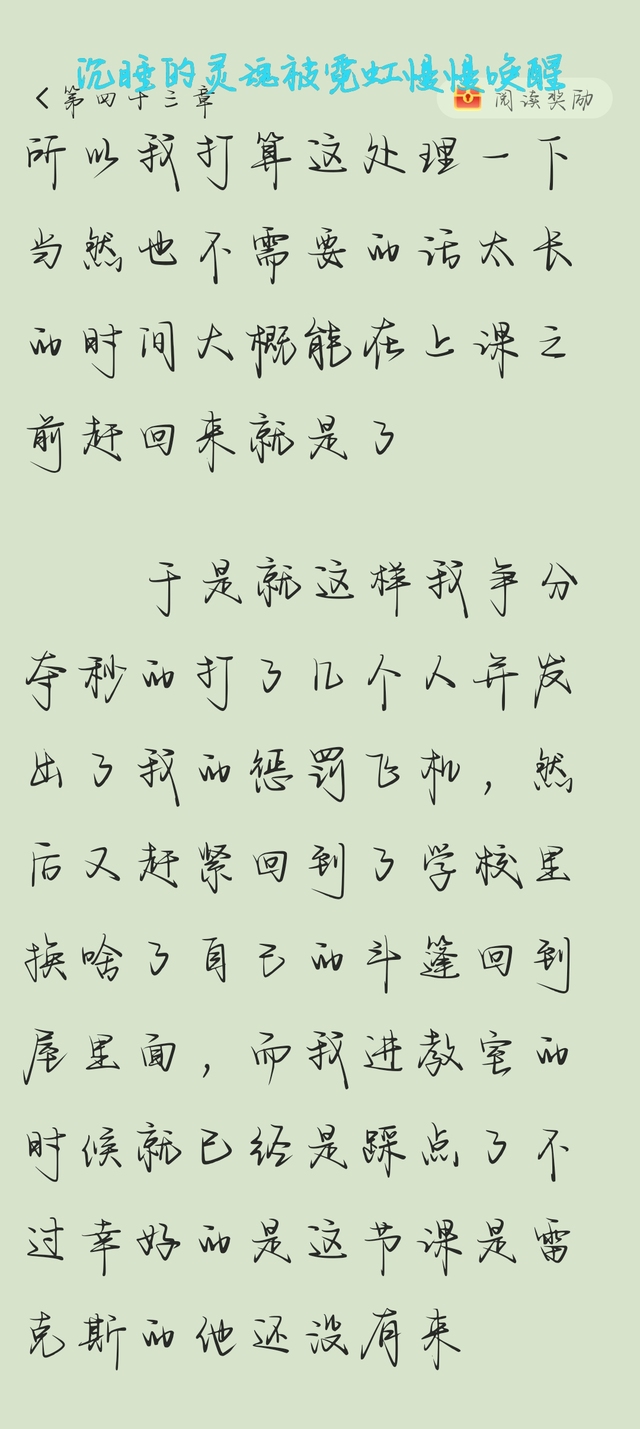 沉睡的灵魂被霓虹慢慢唤醒
第四十三章
阅读奖励
所以我打算这处理一下
当然也不需要的话太长
的时间大概能在上课之
前赶回来就是了
于是就这样我争分
夺秒的打了几个人并发
出了我的惩罚飞机，然
后又赶紧回到了学校里
换啥了自己的斗篷回到
屋里面，而我进教室的
时候就已经是踩点了不
过幸好的是这节课是雷
克斯的他还没有来